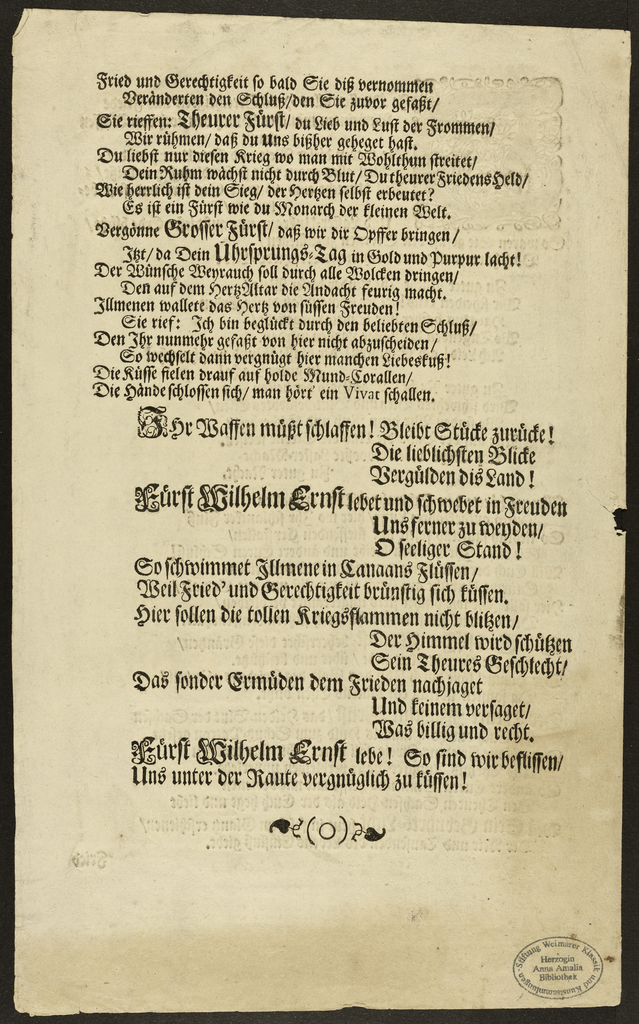 Fried und Gerechtigkeit so bald Sie diß vernommen
Veränderten den Schluß/den Sie zuvor gefaßt/
Sie rieffen: Theurer Fürst/ du Lieb und Lust der Frommen/
Wir rühmen/ daß du Uns bißher geheget hast.
Du liebst nur diesen Krieg wo man mit Wohlthun streitet/
Dein Ruhm wächst nicht durch Blut/ Du theurer Friedens Held/
Wie herrlich ist dein Sieg/ der Hertzen selbst erbeutet?
Es ist ein Fürst wie du Monarch der kleinen Welt.
Vergönne Grosser Fürst/ daß wir dir Opffer bringen/
Itzt/ da Dein Uhrsprungs-Tag in Gold und Purpur lacht!
Der Wünsche Weyrauch soll durch alle Wolcken dringen/
Den auf dem Hertz Altar die Andacht feurig macht.
Illmenen wallete das Hertz von süssen Freuden!
Sie rief: Ich bin beglückt durch den beliebten Schluß/
Den Ihr nunmehr gefaßt von hier nicht abzuscheiden/
So wechselt dann vergnügt hier manchen Liebeskuß!
Die Küsse fielen drauf auf holde Mund-Corallen/
Die Hände schlossen sich/ man hört' ein Vivat schallen.
Ihr Waffen müßt schlaffen! Bleibt Stücke zurücke!
Die lieblichsten Blicke
Vergülden dis Land!
Fürst Wilhelm Ernst lebet und schwebet in Freuden
Uns ferner zu weyden/
O seeliger Stand!
So schwimmet Illmene in Canaans Flüssen/
Weil Fried' und Gerechtigkeit brünstig sich küssen.
Hier sollen die tollen Kriegsflammen nicht blitzen/
Der Himmel wird schützen
Sein Theures Geschlecht/
Das sonder Ermüden dem Frieden nachjaget
Und keinem versaget/
Was billig und recht.
Fürst Wilhelm Ernst lebe! So sind wir beflissen/
Uns unter der Raute vergnüglich zu küssen!
(O)
Stiftung Weimarer Klassik und Kunstsammlungen
Herzogin
Anna Amalia
Bibliothek